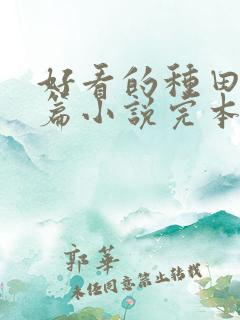 好看的種田
篇小說完本
郭華
未经同意禁止转载